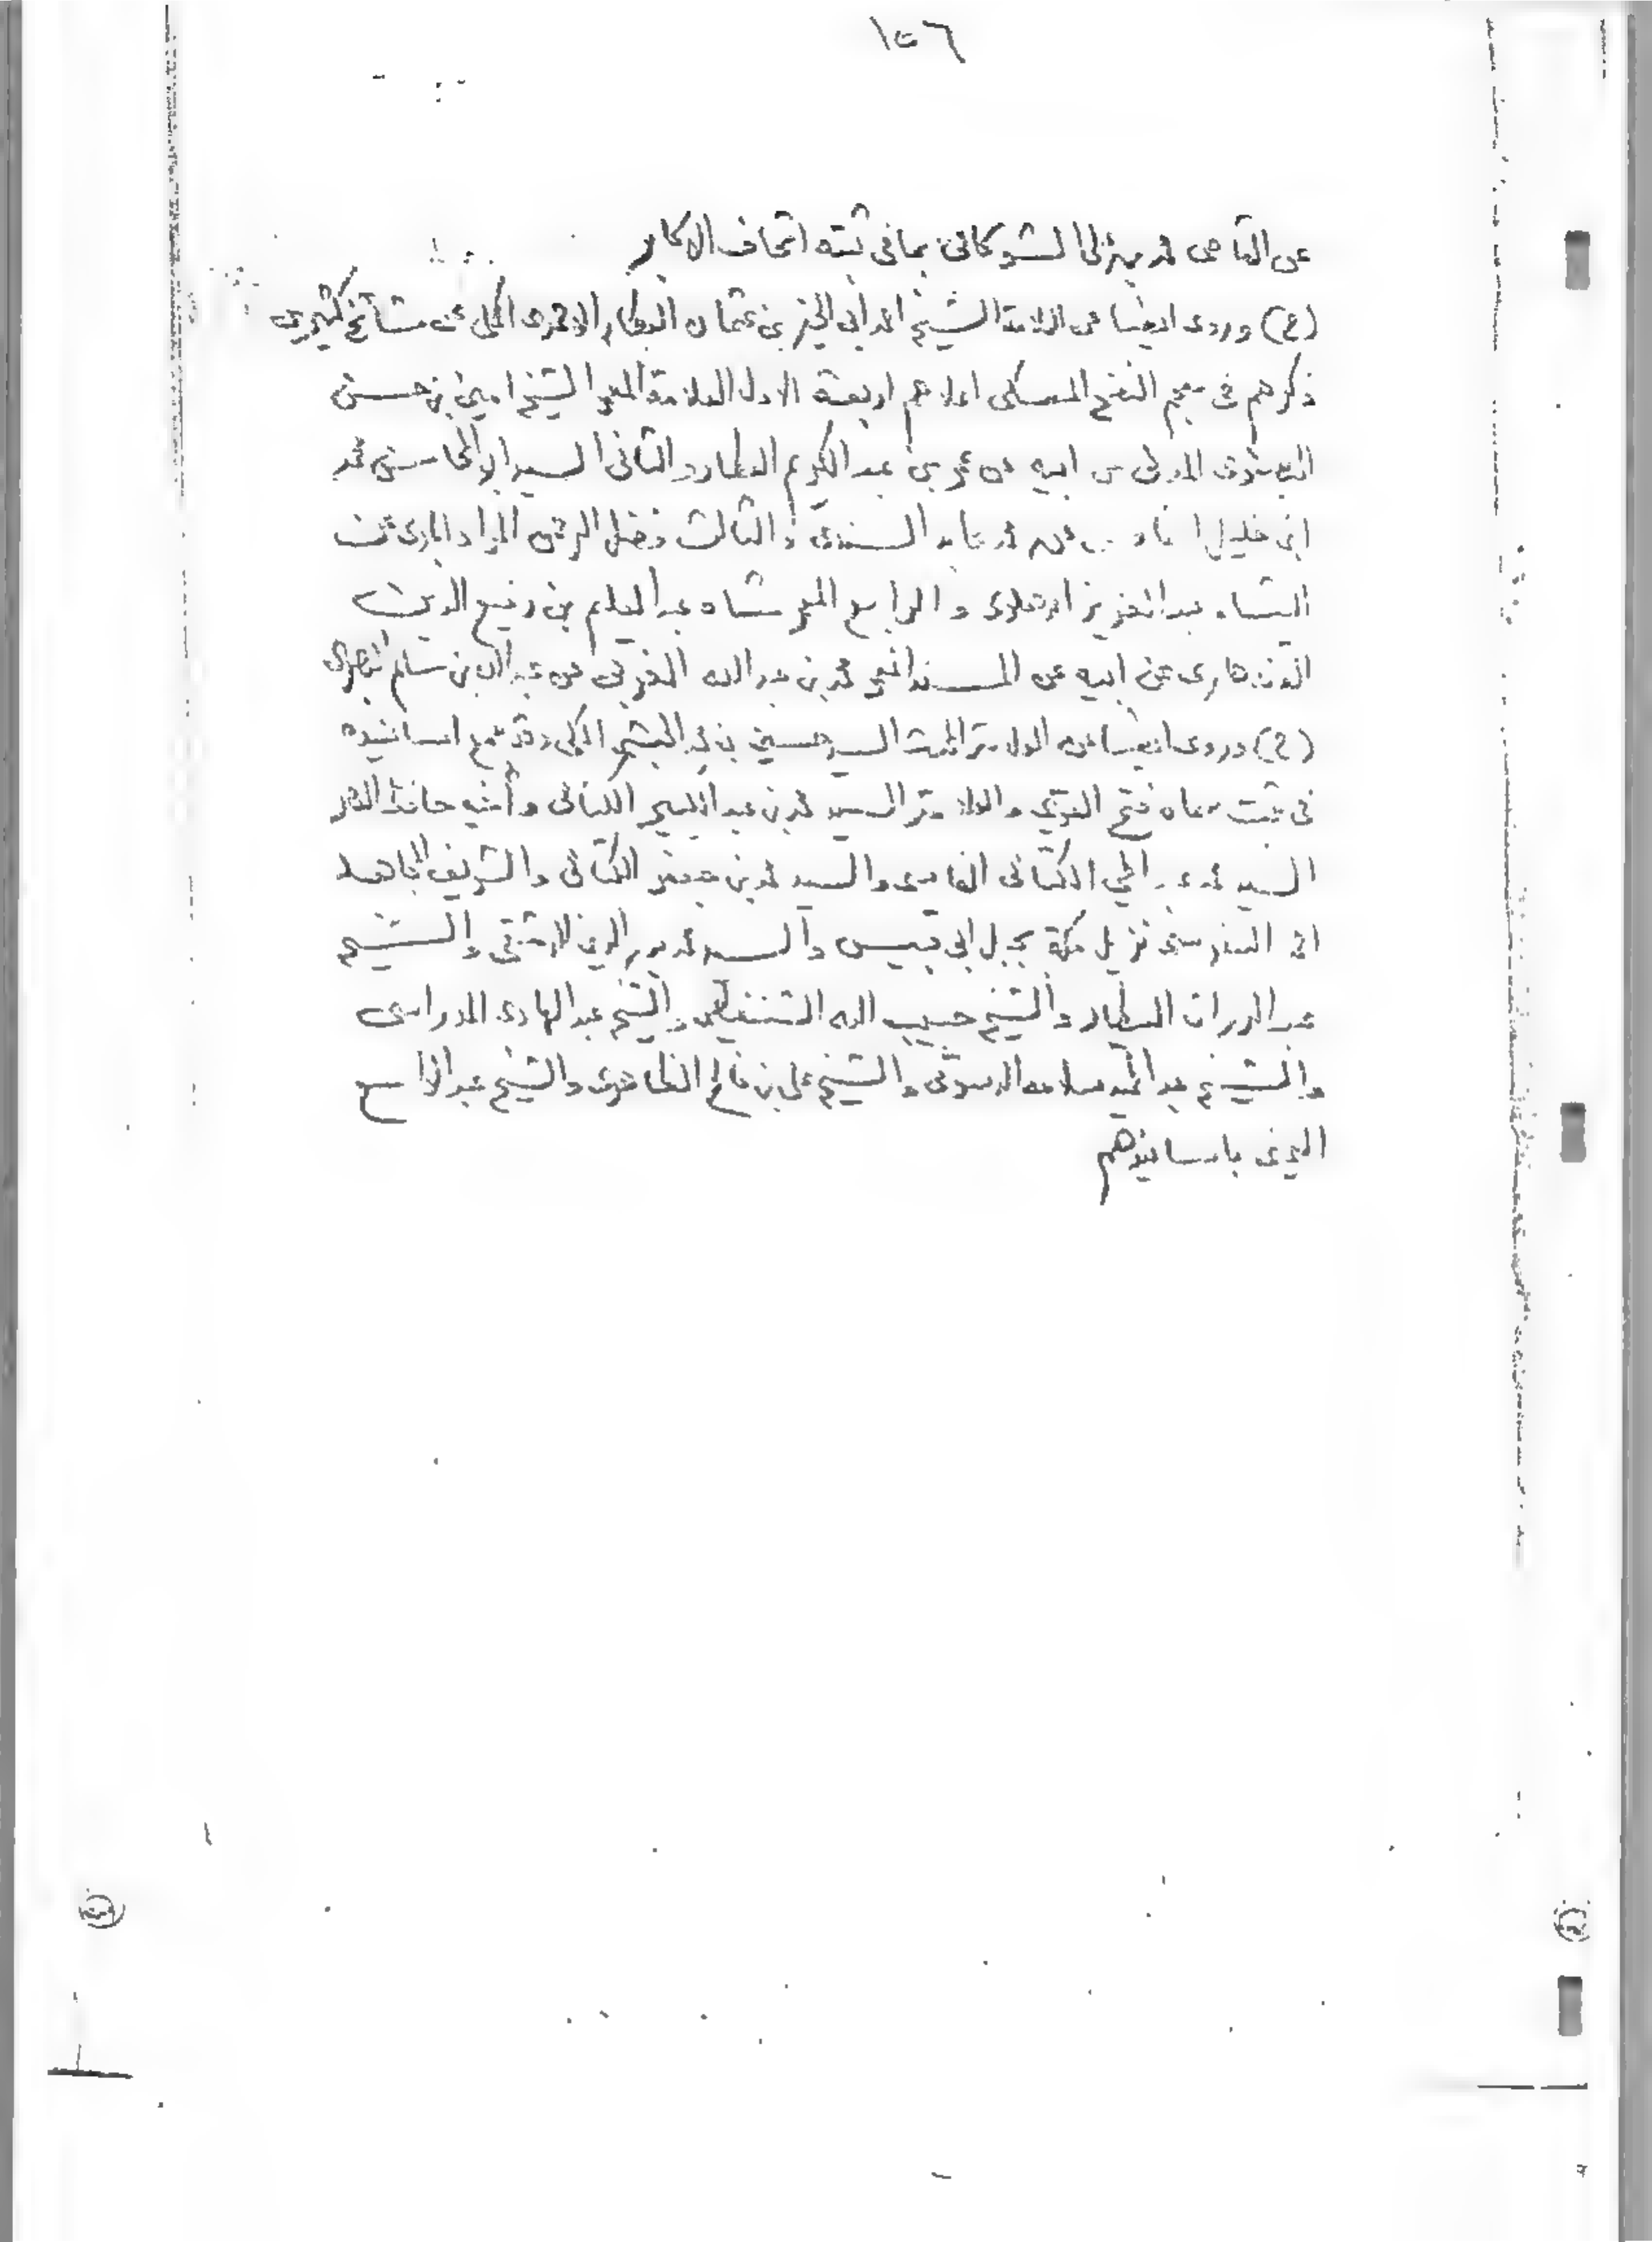 ١٥٦
عن القاضى محمد بن على الشوكانى بما فى ثبته اتحاف الاكابر
(ح) وروى ايضا عن العلامة الشيخ احمد ابى الخير بن عثمان العطار الاحمدى المكى عن مشائخ كثيرين
ذكرهم فى معجم النفح المسكى اعلاهم اربعة الاول العلامة المعمر الشيخ امين بن حسن
المدنى عن ابيه عن عمر بن عبد الكريم العطار والثانى السيد ابو المحاسن محمد
ابن خليل عن محمد عابد السندى والثالث فضل الرحمن المراد ابادى عن
الشاه عبد العزيز الدهلوى والرابع المعمر شاه عبد العليم بن رفيع الدين
القندهارى عن ابيه عن المسند المعمر محمد بن عبد الله المغربى عن عبد الله بن سالم البصرى
(ح) وروى ايضا عن العلامة المحدث السيد حسين بن محمد الحبشى المكى وقد جمع اسانيده
فى ثبت سماه فتح القوى والعلامة السيد محمد بن عبد الكبير الكتانى وأخيه حافظ العصر
السيد محمد عبد الحي الكتانى الفاسى والسيد محمد بن جعفر الكتانى والشريف المجاهد
السنوسى نزيل مكة بجبل ابى قبيس والسيد محمد بدر الدين الدمشقى والشيخ
عبد القادر والشيخ حبيب الله الشنقيطى والشيخ عبد الهادى المدراسى
والشيخ والشيخ على بن فالح الظاهرى والشيخ عبد الواسع
اليمنى باسانيدهم